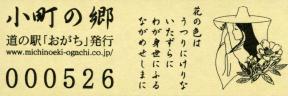 小町の郷
道の駅「おがち」発行
www.michinoeki-ogachi.co.jp/
000526
花の色は
うつりにけりな
いたずらに
わが身世にふる
ながめせしまに